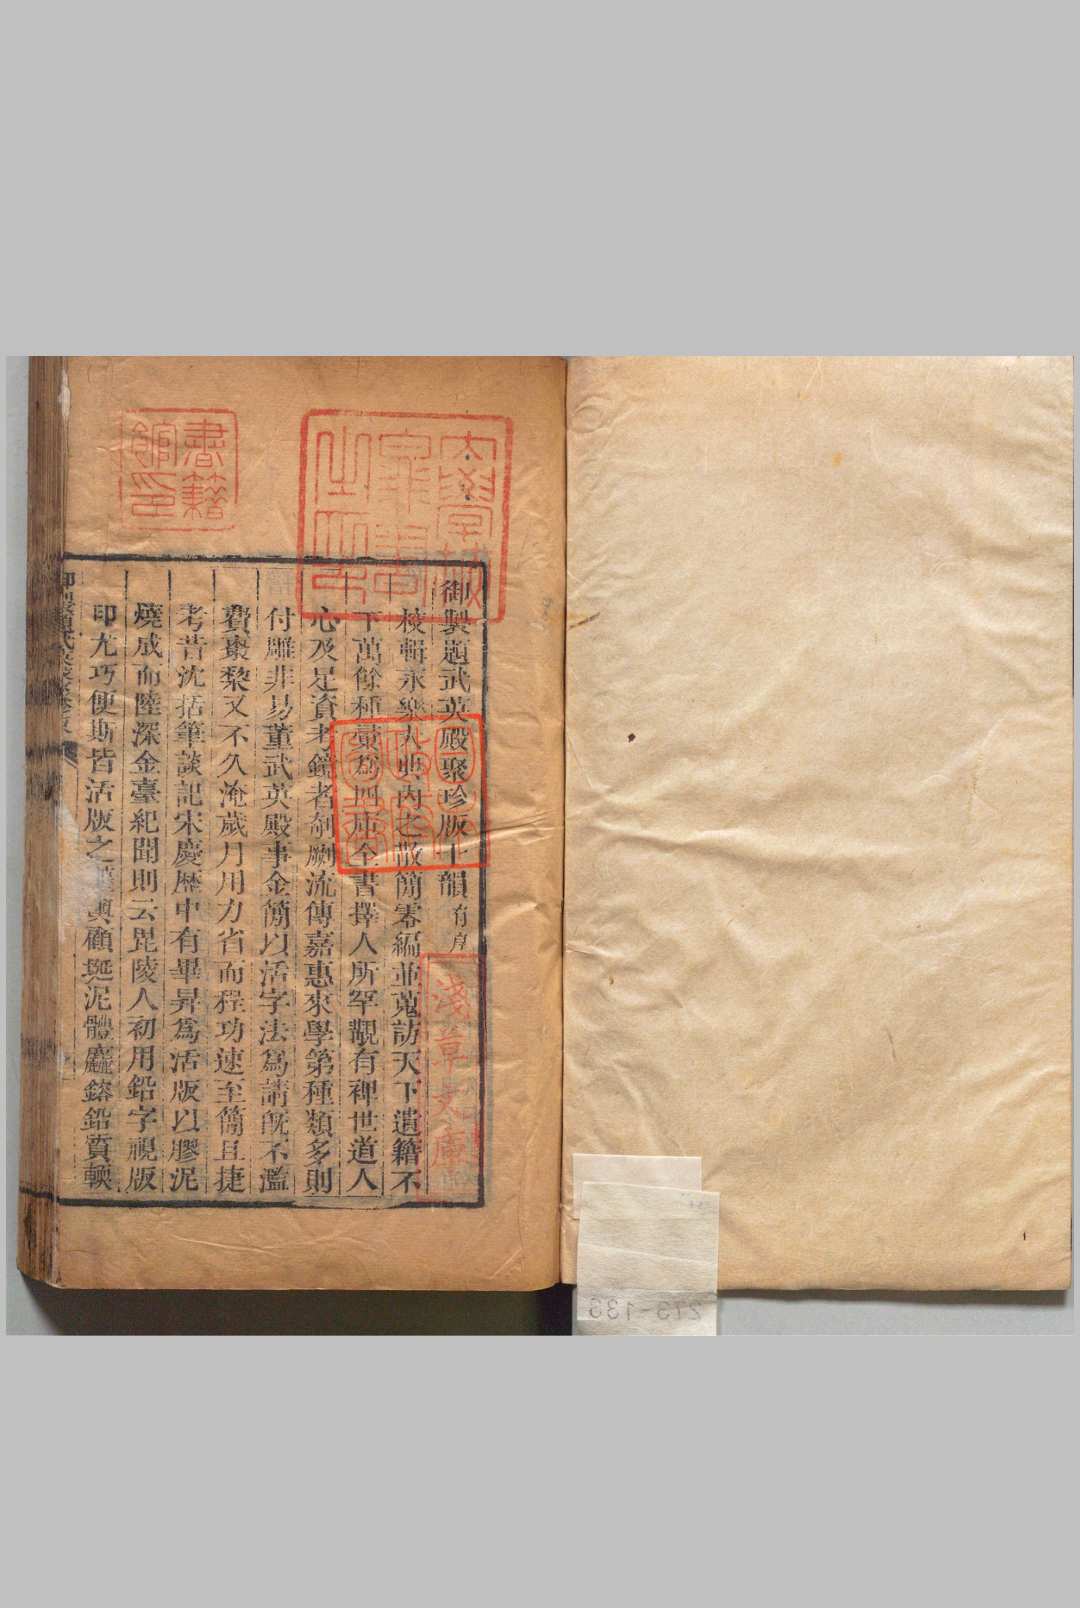 御製題武英殿聚珍版十韻有序
校輯永樂大典內之散簡零編並蒐訪天下遺籍不
下萬餘種彙為四庫全書擇人所罕覯有裨世道人
心及足資考鏡者剞劂流傳嘉惠來學第種類多則
付雕非易董武英殿事金簡以活字法為請既不濫
費棗棃又不久淹歲月用力省而程功速至簡且捷
考昔沈括筆談記宋慶歷中有畢昇為活版以膠泥
燒成而陸深金臺紀聞則云毘陵人初用鉛字視版
印尤巧便斯皆活版之權輿顧埏泥體麤鎔鉛質輭
書籍
館印
淺草文庫
273-133